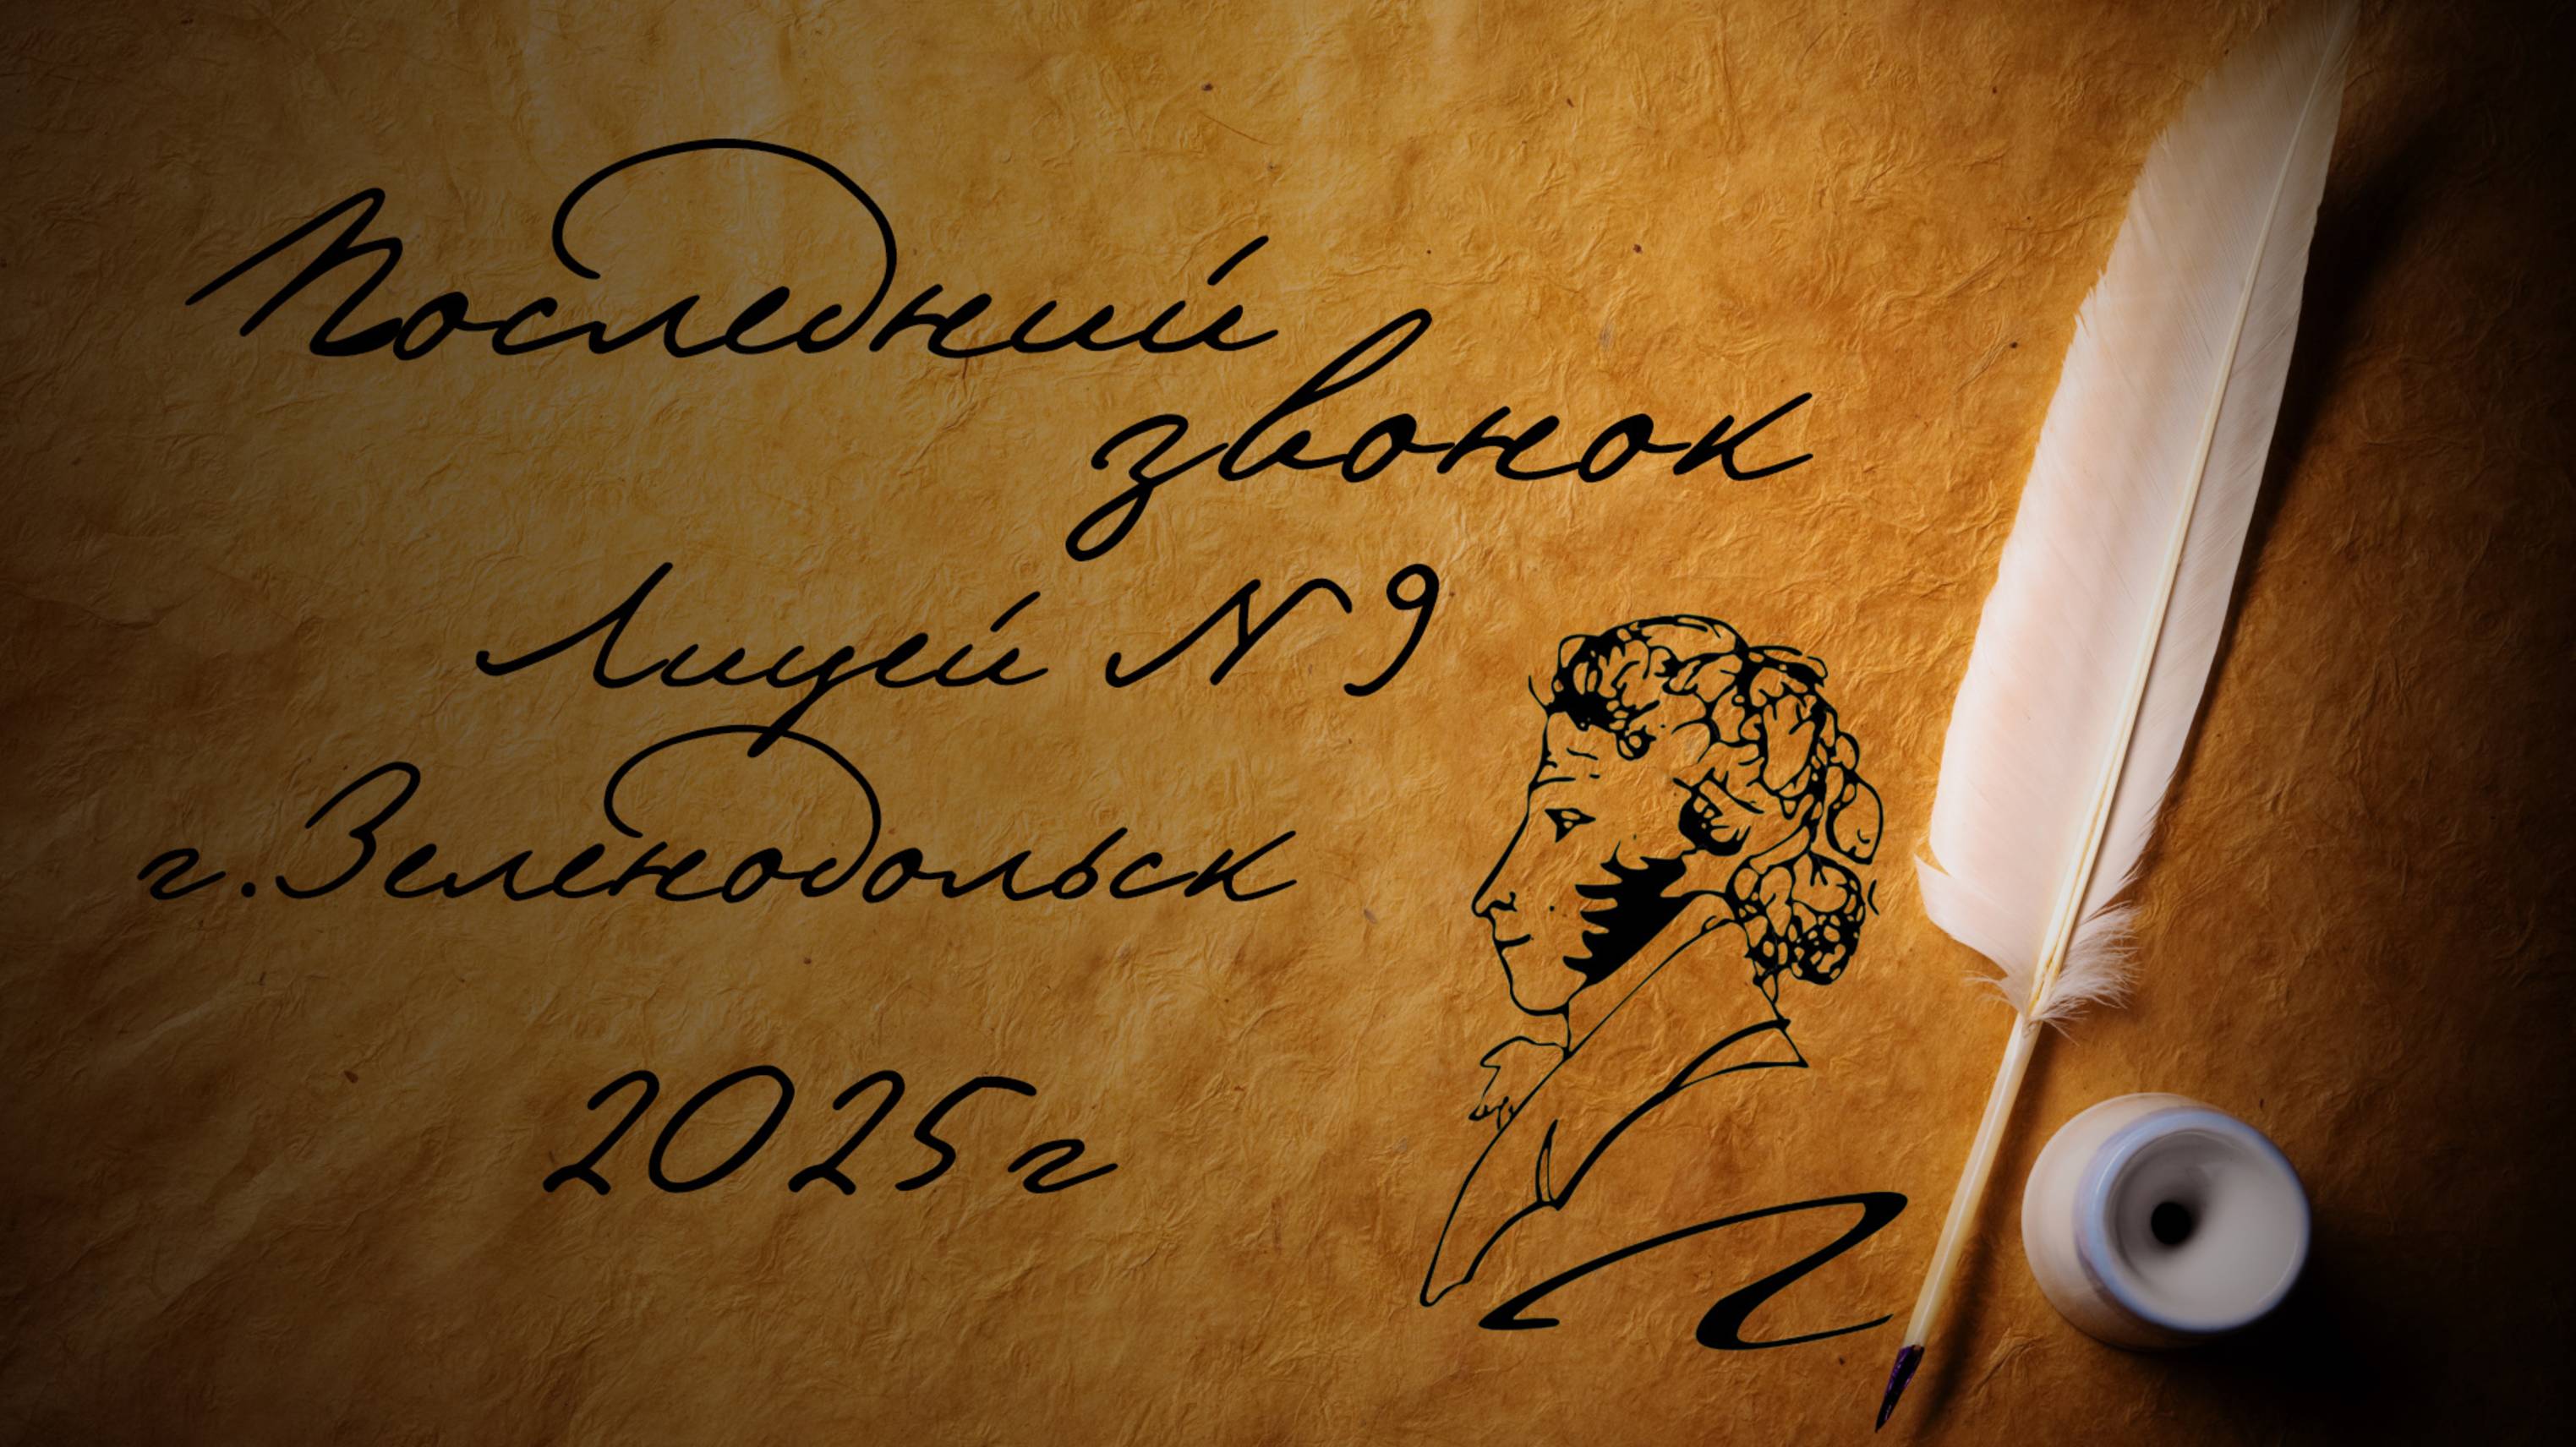 Последний
звонок
Лицей N 9
г.Зеленодольск
2025г